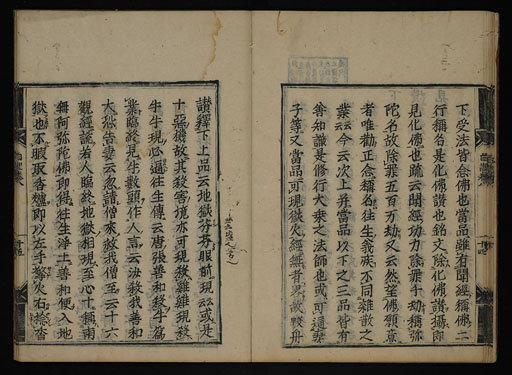 下受法皆念佛也當品雖有聞經稱佛二
行稱名是化佛讚也銘文除化佛讚攝即
見化佛也疏云聞經功力除罪千劫稱弥
陀名故除罪五百万劫又云然望佛願意
者唯勸正念稱名往生義疾不同雜散之
業云云今云次上并當品以下之三品皆有
善知識是修行大乗之法師也或可通妻
子等又當品可現獄火經無者畧故般舟
讃釋下上品云地獄芬芬眼前現云云或是
十惡機故其殺害境亦可現殺雞雞現殺
牛牛現必逼往生傳云唐張善和殺牛為
業臨終見牛數頭作人言云汝殺我善和
大怒告妻云急請僧來救我僧至云十六
觀經説若人臨終地獄相現至心十稱南
無阿弥陀佛即得往生淨土善和便入地
獄也不暇取香爐即以左手擎火右捻香